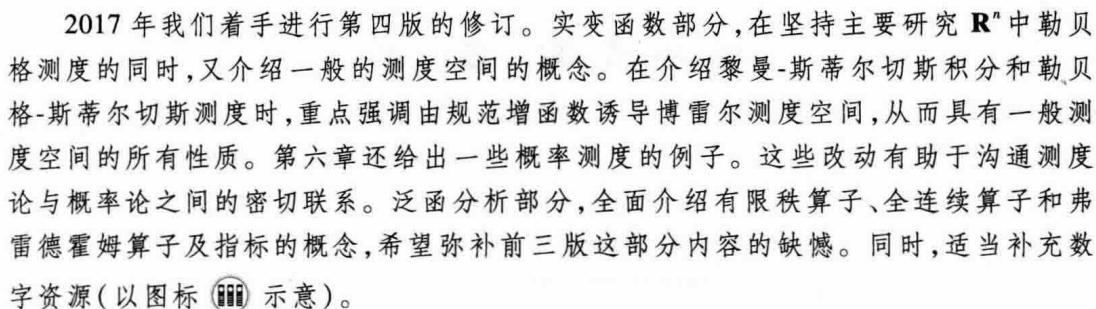 2017 年我们着手进行第四版的修订。实变函数部分,在坚持主要研究 Rⁿ 中勒贝
格测度的同时,又介绍一般的测度空间的概念。在介绍黎曼-斯蒂尔切斯积分和勒贝
格-斯蒂尔切斯测度时,重点强调由规范增函数诱导博雷尔测度空间,从而具有一般测
度空间的所有性质。第六章还给出一些概率测度的例子。这些改动有助于沟通测度
论与概率论之间的密切联系。泛函分析部分,全面介绍有限秩算子、全连续算子和弗
雷德霍姆算子及指标的概念,希望弥补前三版这部分内容的缺憾。同时,适当补充数
字资源(以图标 示意)。